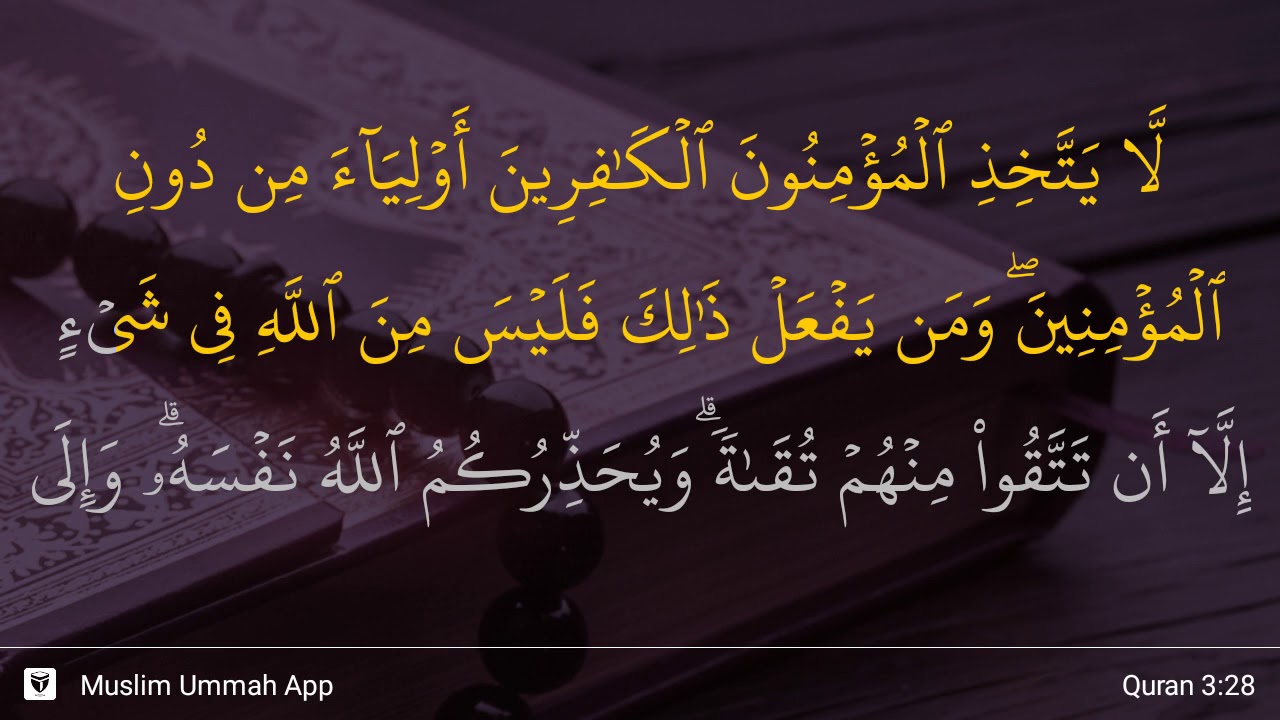 لَّا يَتَّخِذِ ٱلْمُؤْمِنُونَ ٱلْكَـٰفِرِينَ أَوْلِيَآءَ مِن دُونِ
ٱلْمُؤْمِنِينَ ۖ وَمَن يَفْعَلْ ذَٰلِكَ فَلَيْسَ مِنَ ٱللَّهِ فِى شَىْءٍ
إِلَّآ أَن تَتَّقُوا۟ مِنْهُمْ تُقَىٰةً ۗ وَيُحَذِّرُكُمُ ٱللَّهُ نَفْسَهُۥ ۗ وَإِلَى
Muslim Ummah App
Quran 3:28